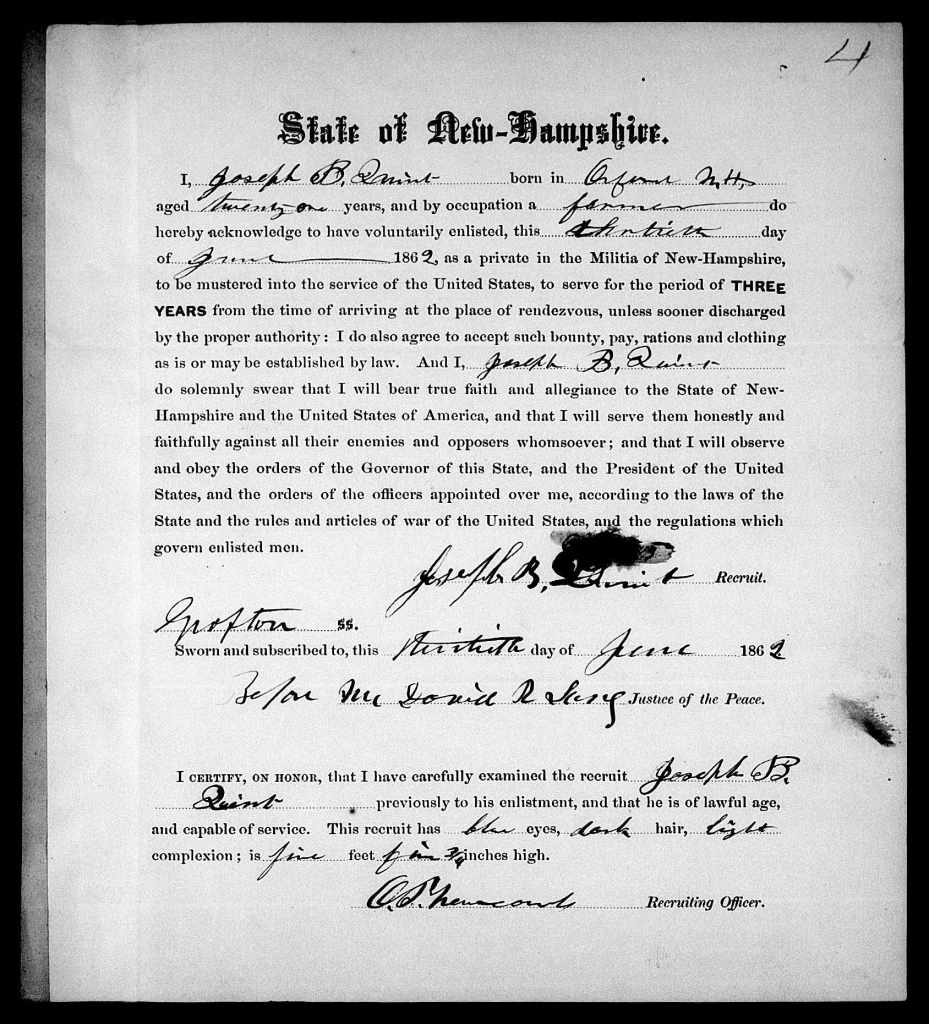 4
State of New-Hampshire.
I, Joseph B. Quint born in Orford N.H.
aged twenty one years, and by occupation a farmer do
hereby acknowledge to have voluntarily enlisted, this thirtieth day
of June 1862, as a private in the Militia of New-Hampshire,
to be mustered into the service of the United States, to serve for the period of THREE
YEARS from the time of arriving at the place of rendezvous, unless sooner discharged
by the proper authority: I do also agree to accept such bounty, pay, rations and clothing
as is or may be established by law. And I, Joseph B. Quint
do solemnly swear that I will bear true faith and allegiance to the State of New-
Hampshire and the United States of America, and that I will serve them honestly and
faithfully against all their enemies and opposers whomsoever; and that I will observe
and obey the orders of the Governor of this State, and the President of the United
States, and the orders of the officers appointed over me, according to the laws of the
State and the rules and articles of war of the United States, and the regulations which
govern enlisted men.
Joseph B. Quint Recruit.
Grafton ss.
Sworn and subscribed to, this thirtieth day of June 1862
Before Me David R Lang Justice of the Peace.
I CERTIFY, ON HONOR, that I have carefully examined the recruit Joseph B.
Quint previously to his enlistment, and that he is of lawful age,
and capable of service. This recruit has blue eyes, dark hair, light
complexion; is five feet five 3/4 inches high.
Recruiting Officer.